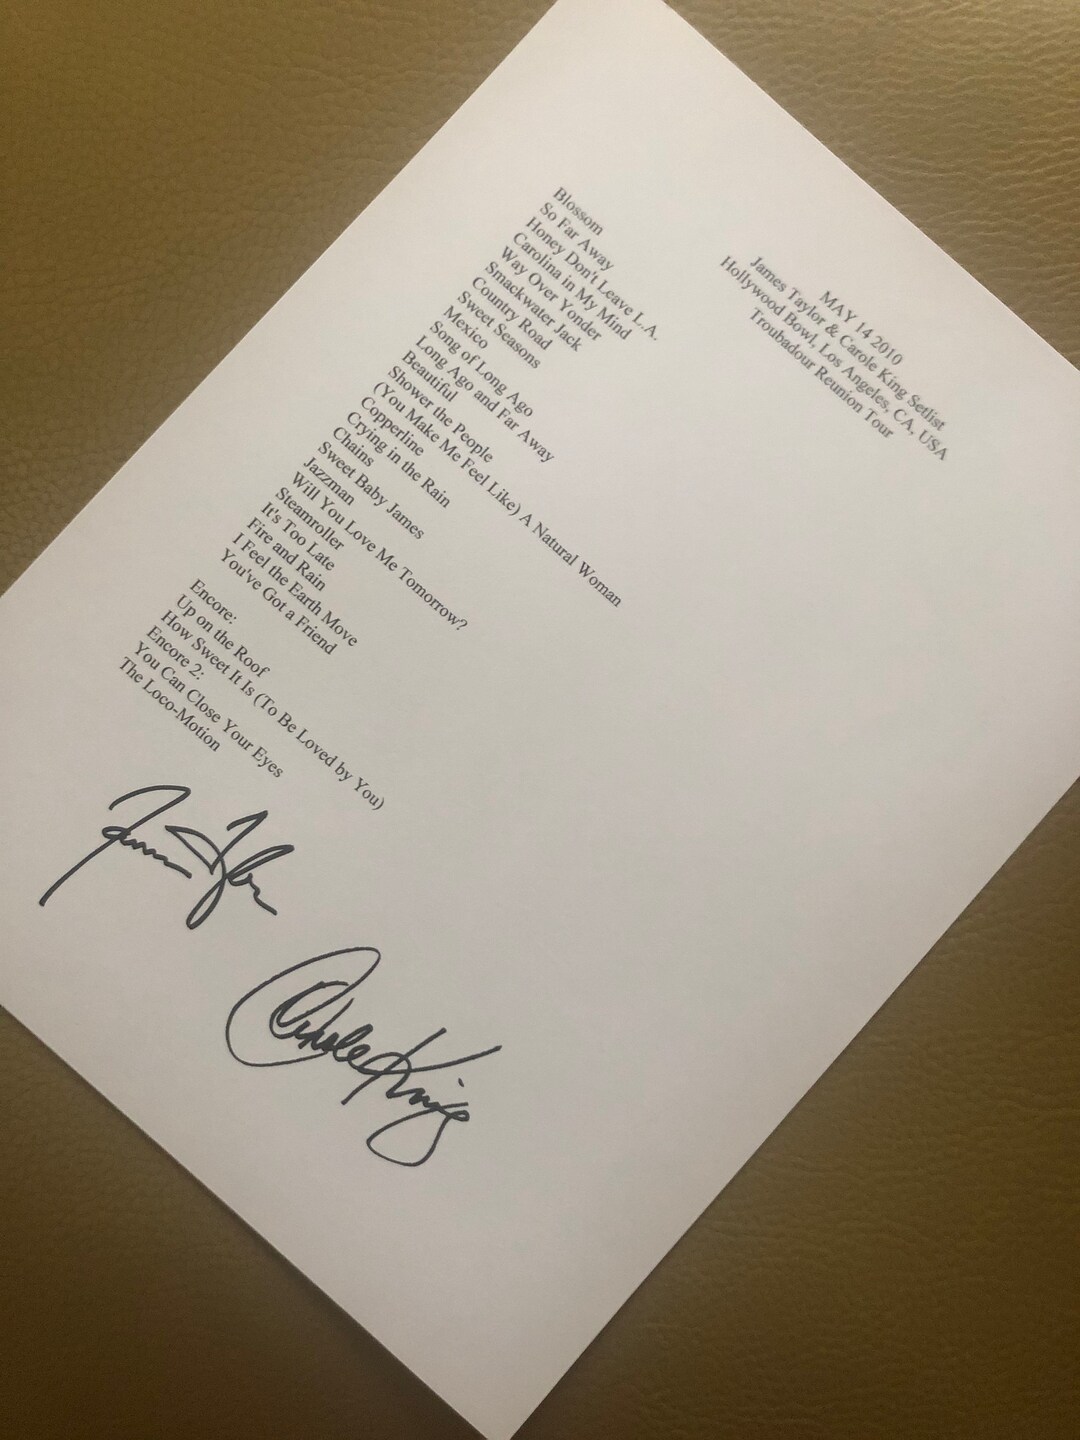 MAY 14 2010
James Taylor & Carole King Setlist
Hollywood Bowl, Los Angeles, CA, USA
Troubadour Reunion Tour
Blossom
So Far Away
Honey Don't Leave L.A.
Carolina in My Mind
Way Over Yonder
Smackwater Jack
Country Road
Sweet Seasons
Mexico
Song of Long Ago
Long Ago and Far Away
Beautiful
Shower the People
(You Make Me Feel Like) A Natural Woman
Copperline
Crying in the Rain
Chains
Sweet Baby James
Jazzman
Will You Love Me Tomorrow?
Steamroller
It's Too Late
Fire and Rain
I Feel the Earth Move
You've Got a Friend
Encore:
Up on the Roof
How Sweet It Is (To Be Loved by You)
Encore 2:
You Can Close Your Eyes
The Loco-Motion
Carole King